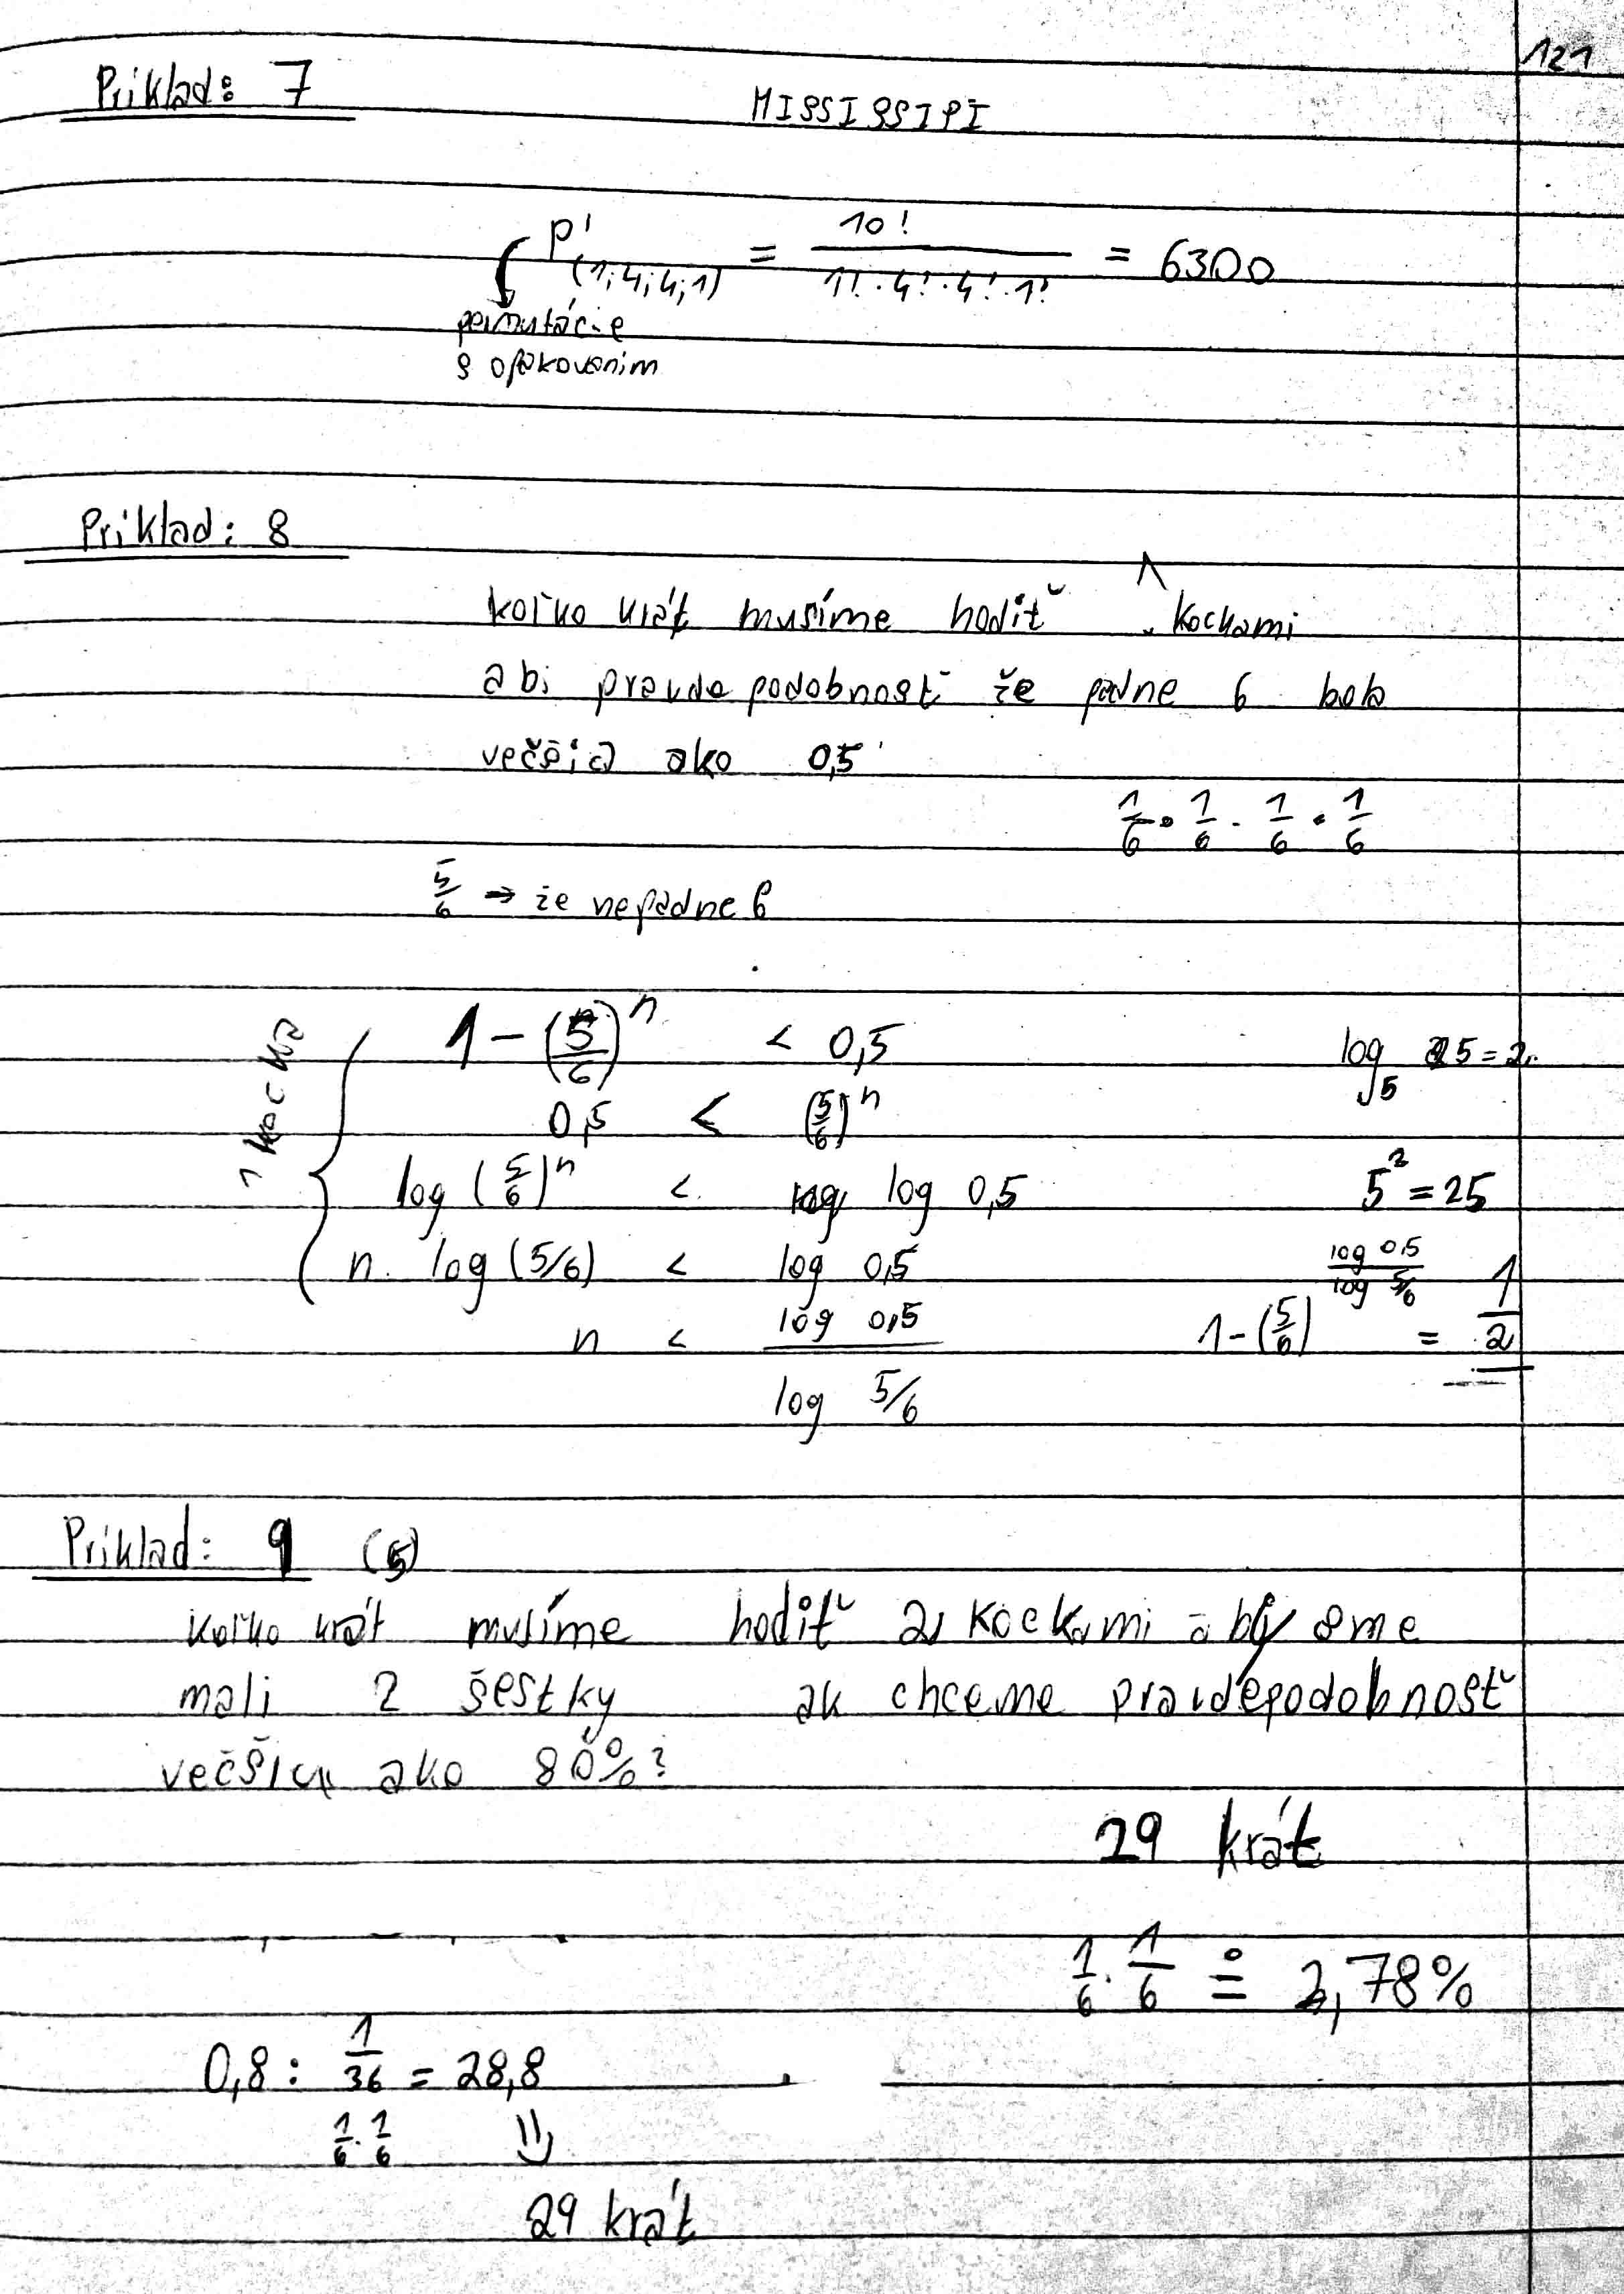 121
Príklad: 7
MISSISSIPI
P'(1;4;4;1) = 10! / 1! · 4! · 4! · 1! = 6300
permutácie
s opakovaním
Príklad: 8
koľko krát musíme hodiť 1 kockami
abi pravdepodobnosť že padne 6 bola
večšia ako 0,5
1/6 · 1/6 · 1/6 · 1/6
5/6 → že nepadne 6
1 kocka
1 - (5/6)^n < 0,5
log_5 25 = 2
0,5 < (5/6)^n
log (5/6)^n < log 0,5
5^2 = 25
n. log (5/6) < log 0,5
n < log 0,5 / log 5/6
1 - (5/6)^(log 0,5 / log 5/6) = 1/2
Príklad: 9 (5)
koľko krát musíme hodiť 2 kockami aby sme
mali 2 šestky ak chceme pravdepodobnosť
večšiu ako 80%?
29 krát
1/6 · 1/6 ≐ 2,78%
0,8 : 1/36 = 28,8
1/6 · 1/6
29 krát